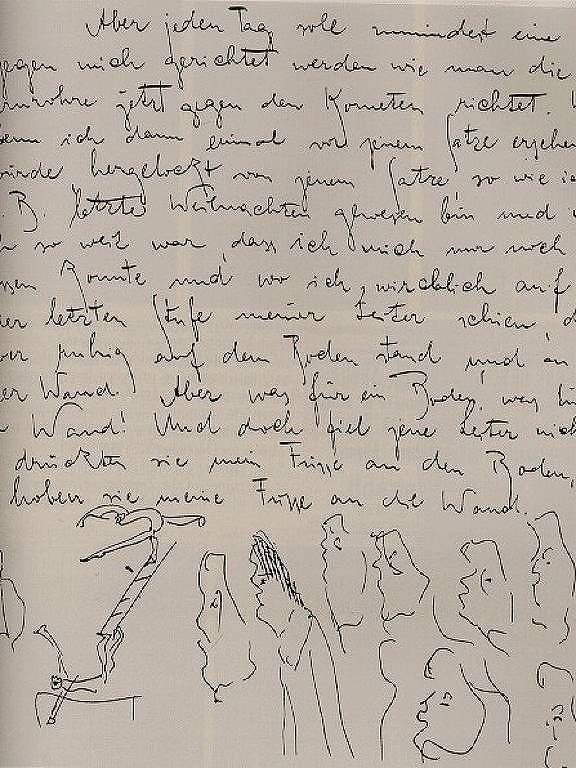 Aber jeden Tag soll mindest eine
gegen mich gerichtet werden wie man die
rnrohre jetzt gegen den Kometen richtet.
enn ich dann einmal vor jenem Satze erschei
ürde hergelockt von jenem Satze so wie ic
B. letzte Weihnachten gewesen bin und
so weit war, dass ich mich nur noch
ssen konnte und wo ich wirklich auf
er letzten Stufe meiner Leiter schien, d
ber ruhig auf dem Boden stand und an
er Wand. Aber was für ein Boden, was fü
Wand! Und doch fiel jene Leiter nich
drückten sie meine Füsse an den Boden,
hoben sie meine Füsse an die Wand.